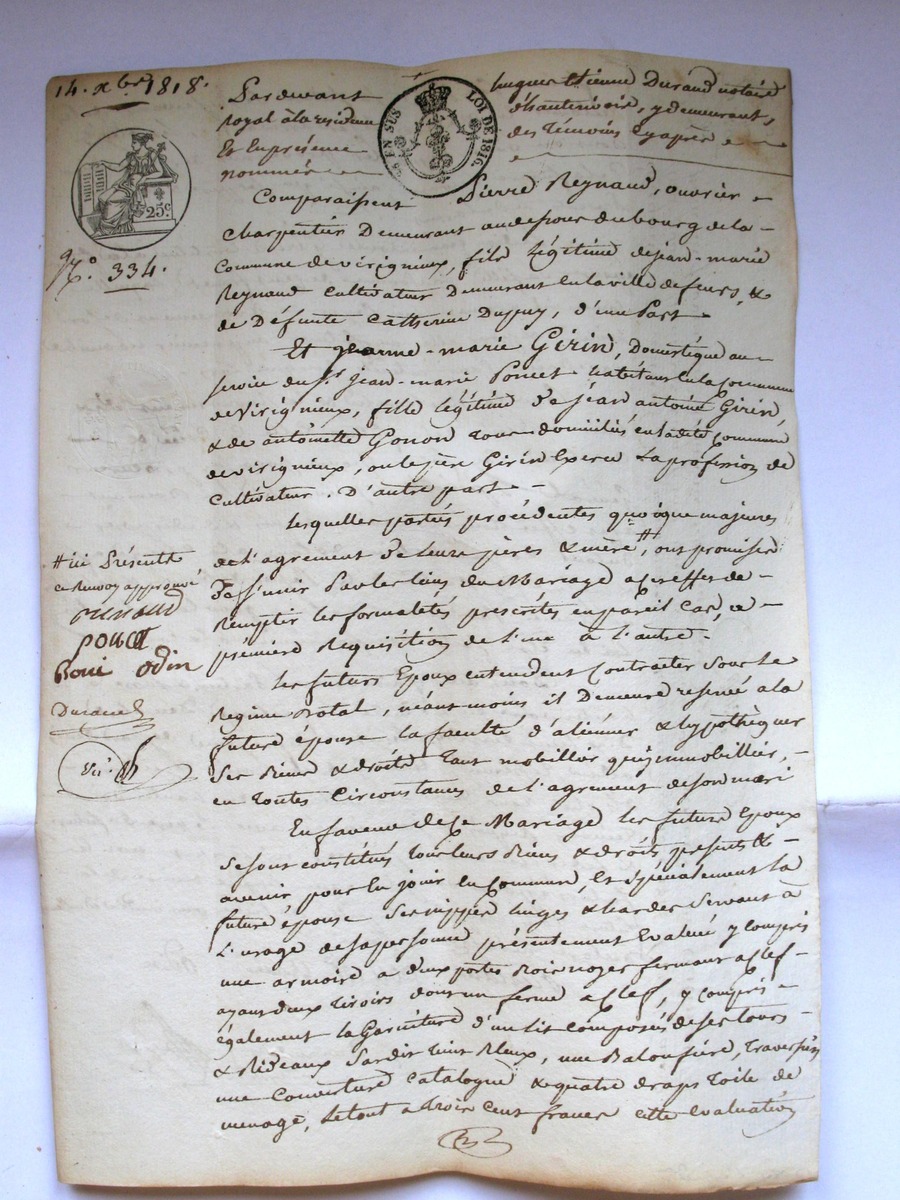 14. xbre 1818.
Pardevant hugues Etienne Durand notaire
royal à la residence d'hauterivoir, y demeurant,
Et En présence des Témoins cy après
nommés
EN SUS LOI DE 1816.
25c
No. 334.
Comparaissent Pierre Reynaud, ouvrier
charpentier Demeurant au du bourg de la
Commune de virignieux, fils Légitime de jean-marie
Reynaud Cultivateur Demeurant en la ville de feurs, &
de Défunte Catherine Dupuy, d'une Part
Et jeanne-marie Girin, Domestique au
service du Sr. jean-marie Poncet habitant en la Commune
de virignieux, fille légitime d'a jean antoine Girin,
& de antoinette Gonon tous domiciliés en la dite Commune
de virignieux, ou le père Girin Exerce la profession de
Cultivateur. D'autre part
Lesquelles parties procédentes quoique majeures
de l'agrement de leurs pères & mère #, ont promis
d'as'unir Par les liens du Mariage a cet effet de
Remplir les formaletés prescrites en pareil cas, a
première Requisition de l'une à l'autre.
# ici Présente
ce Renvoy approuvé
poncet
odin
Durand
Les futurs Epoux entendent Contracter sous le
Regime Dotal, néansmoins il Demeure reservé a la
future épouse la faculté d'aliéner & hypothèquer
Ses Biens & droits tant mobiliers qu'immobiliers,
en toutes Circonstances de l'agrement de son mari
En faveur de ce Mariage les futurs Epoux
Se sont constitués tous leurs Biens & droits, présents &
avenir pour en jouir en Commun, Et spécialement la
future épouse Ses nippes linges & hardes Servant à
L'usage de sa personne présentement Evalués y compris
une armoire a deux portes Bois noyer fermant a Clef
ayant deux tiroirs dont un ferme a Clef, y compris
également la Garniture d'un lit composés de ses tours
& Rideaux Sardis teint Bleux, une Baloufière, traversin
une Couverture Catalogne & quatre draps toile de
menage, Le tout a trois Cent francs cette evaluation